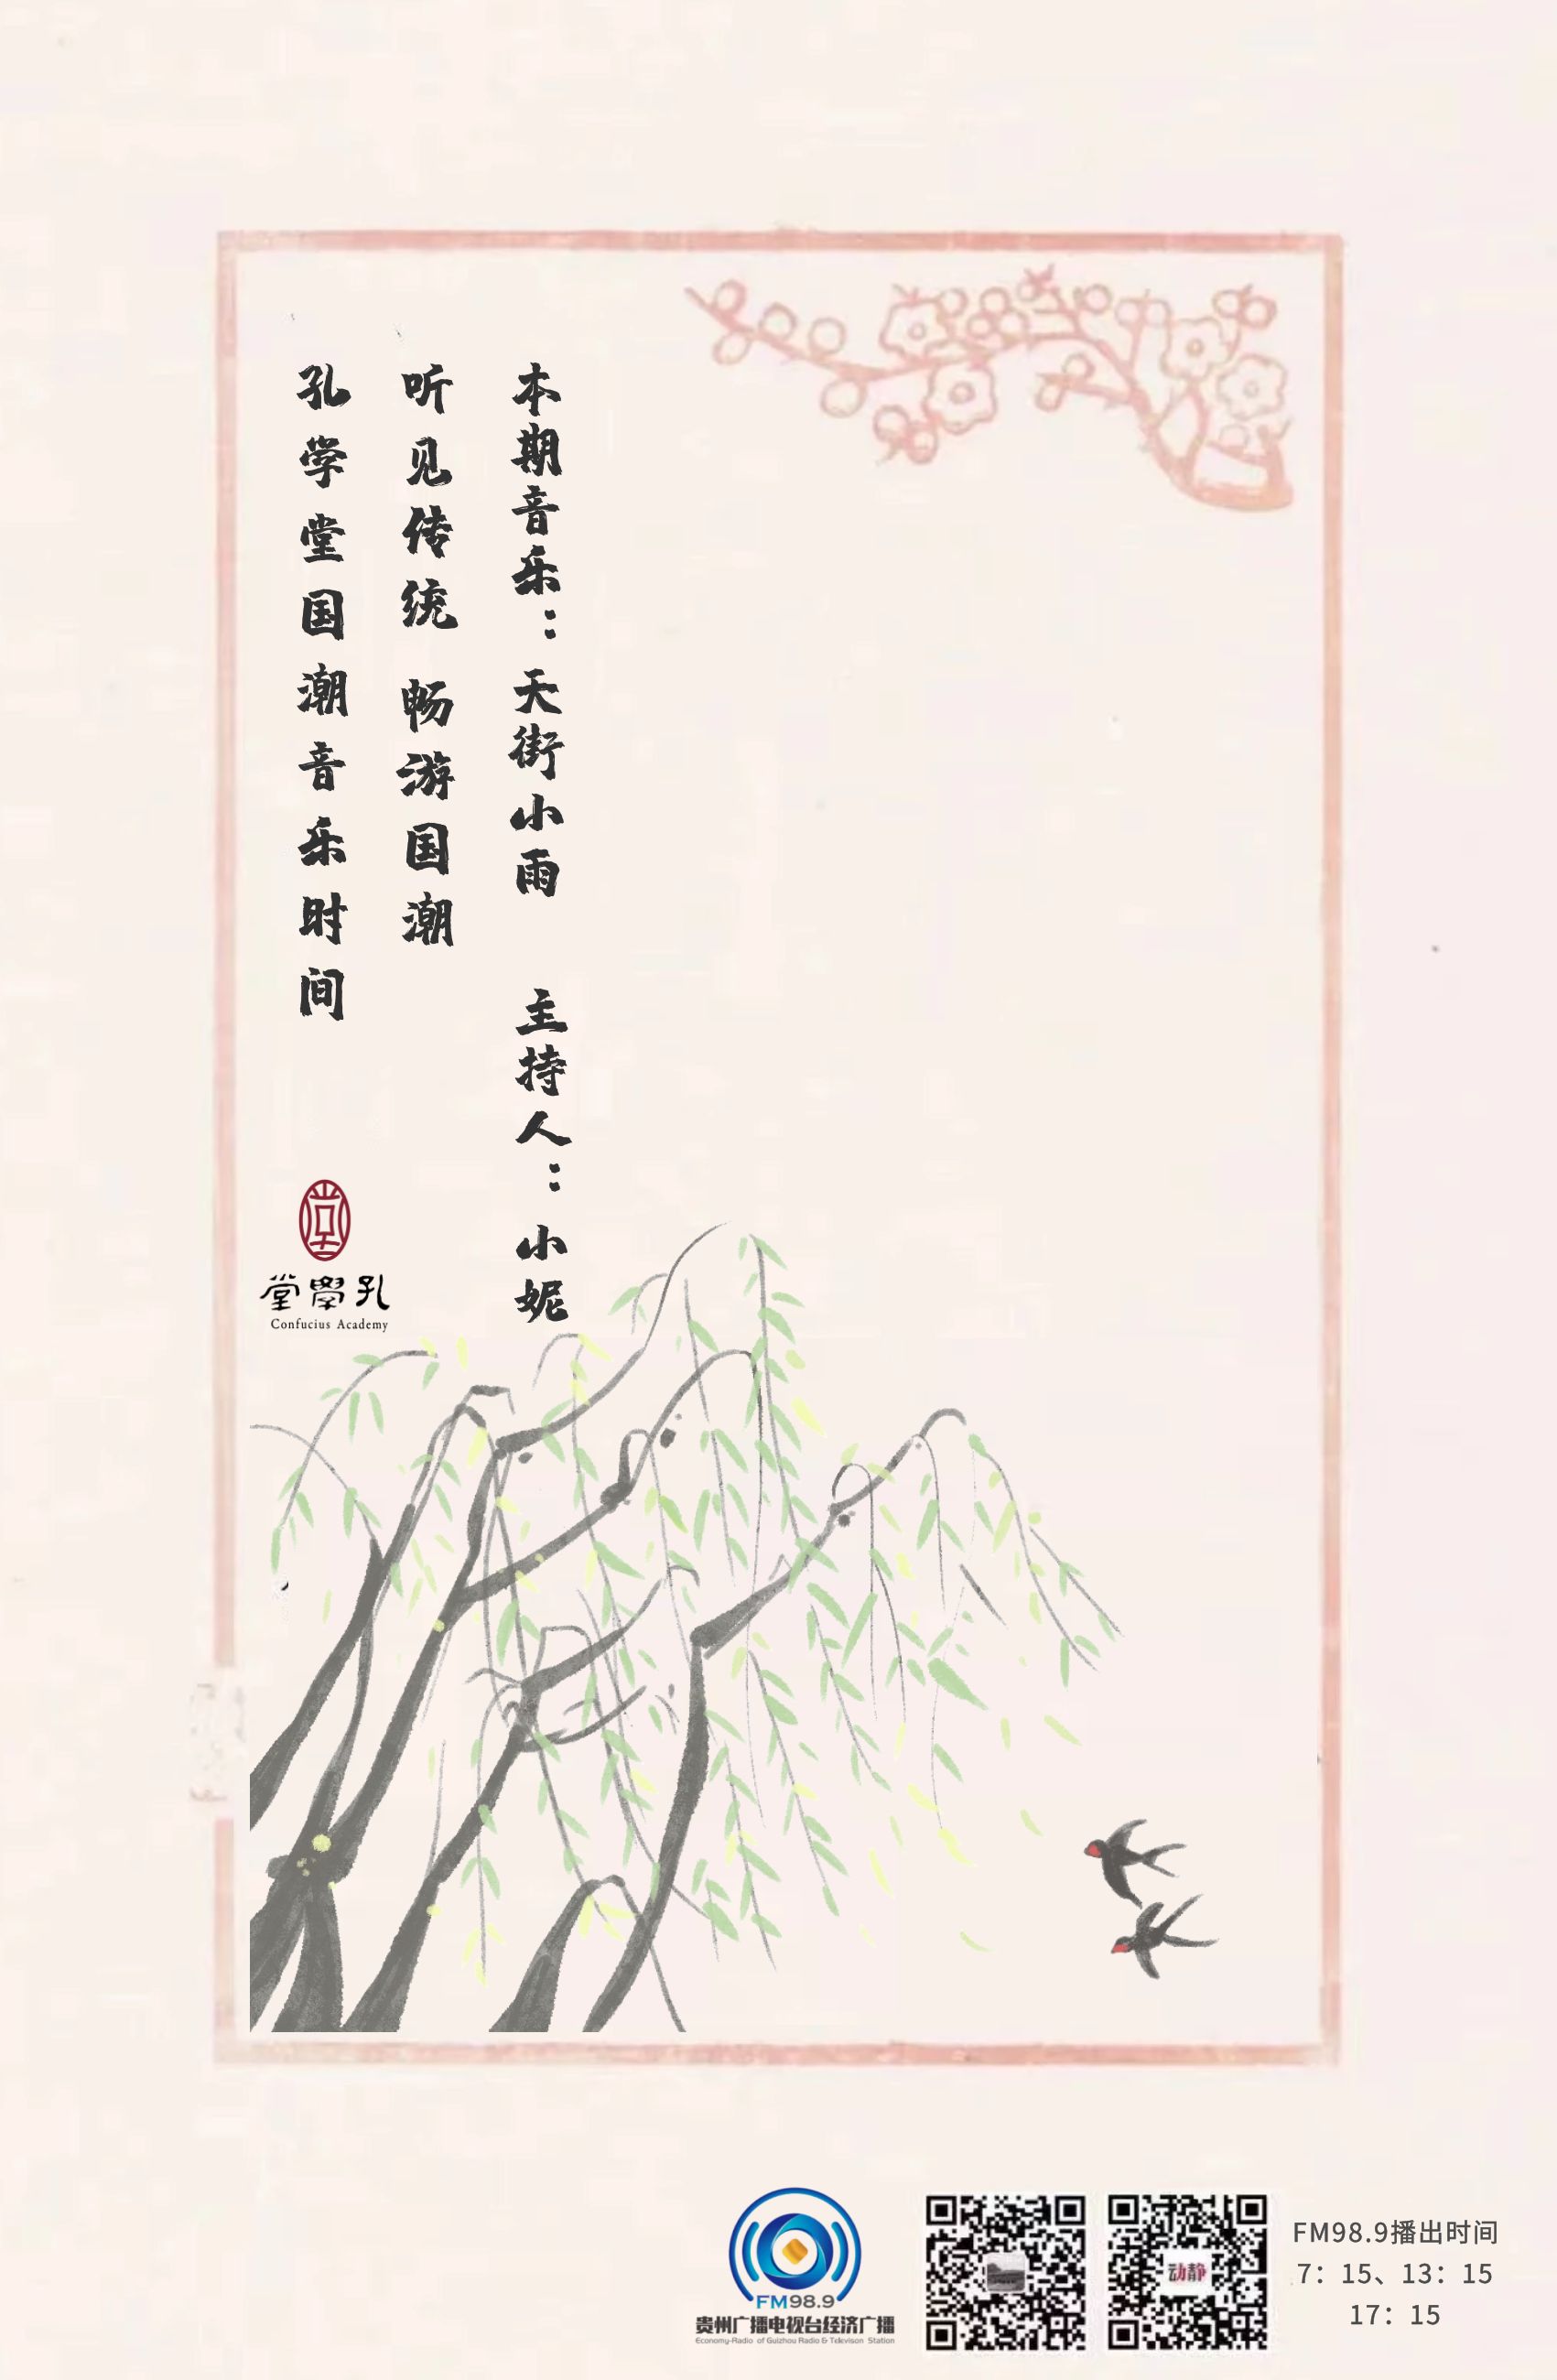 孔学堂国潮音乐时间
听见传统 畅游国潮
本期音乐：天街小雨 主持人：小妮
堂學孔
Confucius Academy
FM98.9
贵州广播电视台经济广播
Economy-Radio of Guizhou Radio & Television Station
动静
FM98.9播出时间
7：15、13：15
17：15